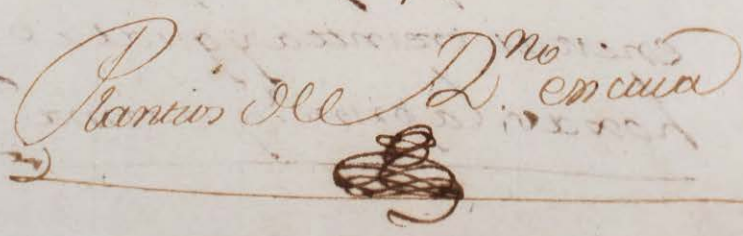 Plantios del R.no en cuia